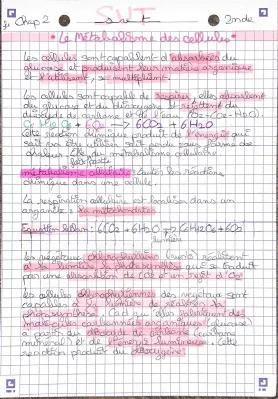 Chap 2 SVT 2nde
Le Métabolisme des cellules
Les cellules sont capables d'absorber du
glucose et produisent leur matière organique
et l'utilisent, se multiplient.
Les cellules sont capable de respirer, elles absorbent
du glucose et du dioxygène et rejettent du
dioxyde de carbone et de l'eau (CO2-O2-H2O).
6O2 → 6CO2 + 6H2O
Cette réaction chimique produit de l'énergie qui
soit va être utilisée soit perdu sous forme de
chaleur. Elle du métabolisme cellulaire
fait partie
métabolisme cellulaire: toutes les réactions
chimique dans une cellule.
La respiration cellulaire est localisée dans un
organite: la mitochondrie
Equation bilan: 6CO2 + 6H2O → C6H12O6 + 6O2
lumière
Les végétaux chlorophylliens (verts) réalisent
à la lumière la photosynthèse qui se traduit
par une absorption de CO2 et un rejet d'O2
Les cellules chlorophylliennes des végétaux sont
capables à la lumière de réaliser la
photosynthèse. Càd qu'elles fabriquent des
matières carbonées organiques: glucose
à partir du dioxyde de carbone (carbone
minéral) et de l'énergie lumineuse. Cette
réaction produit du dioxygène.